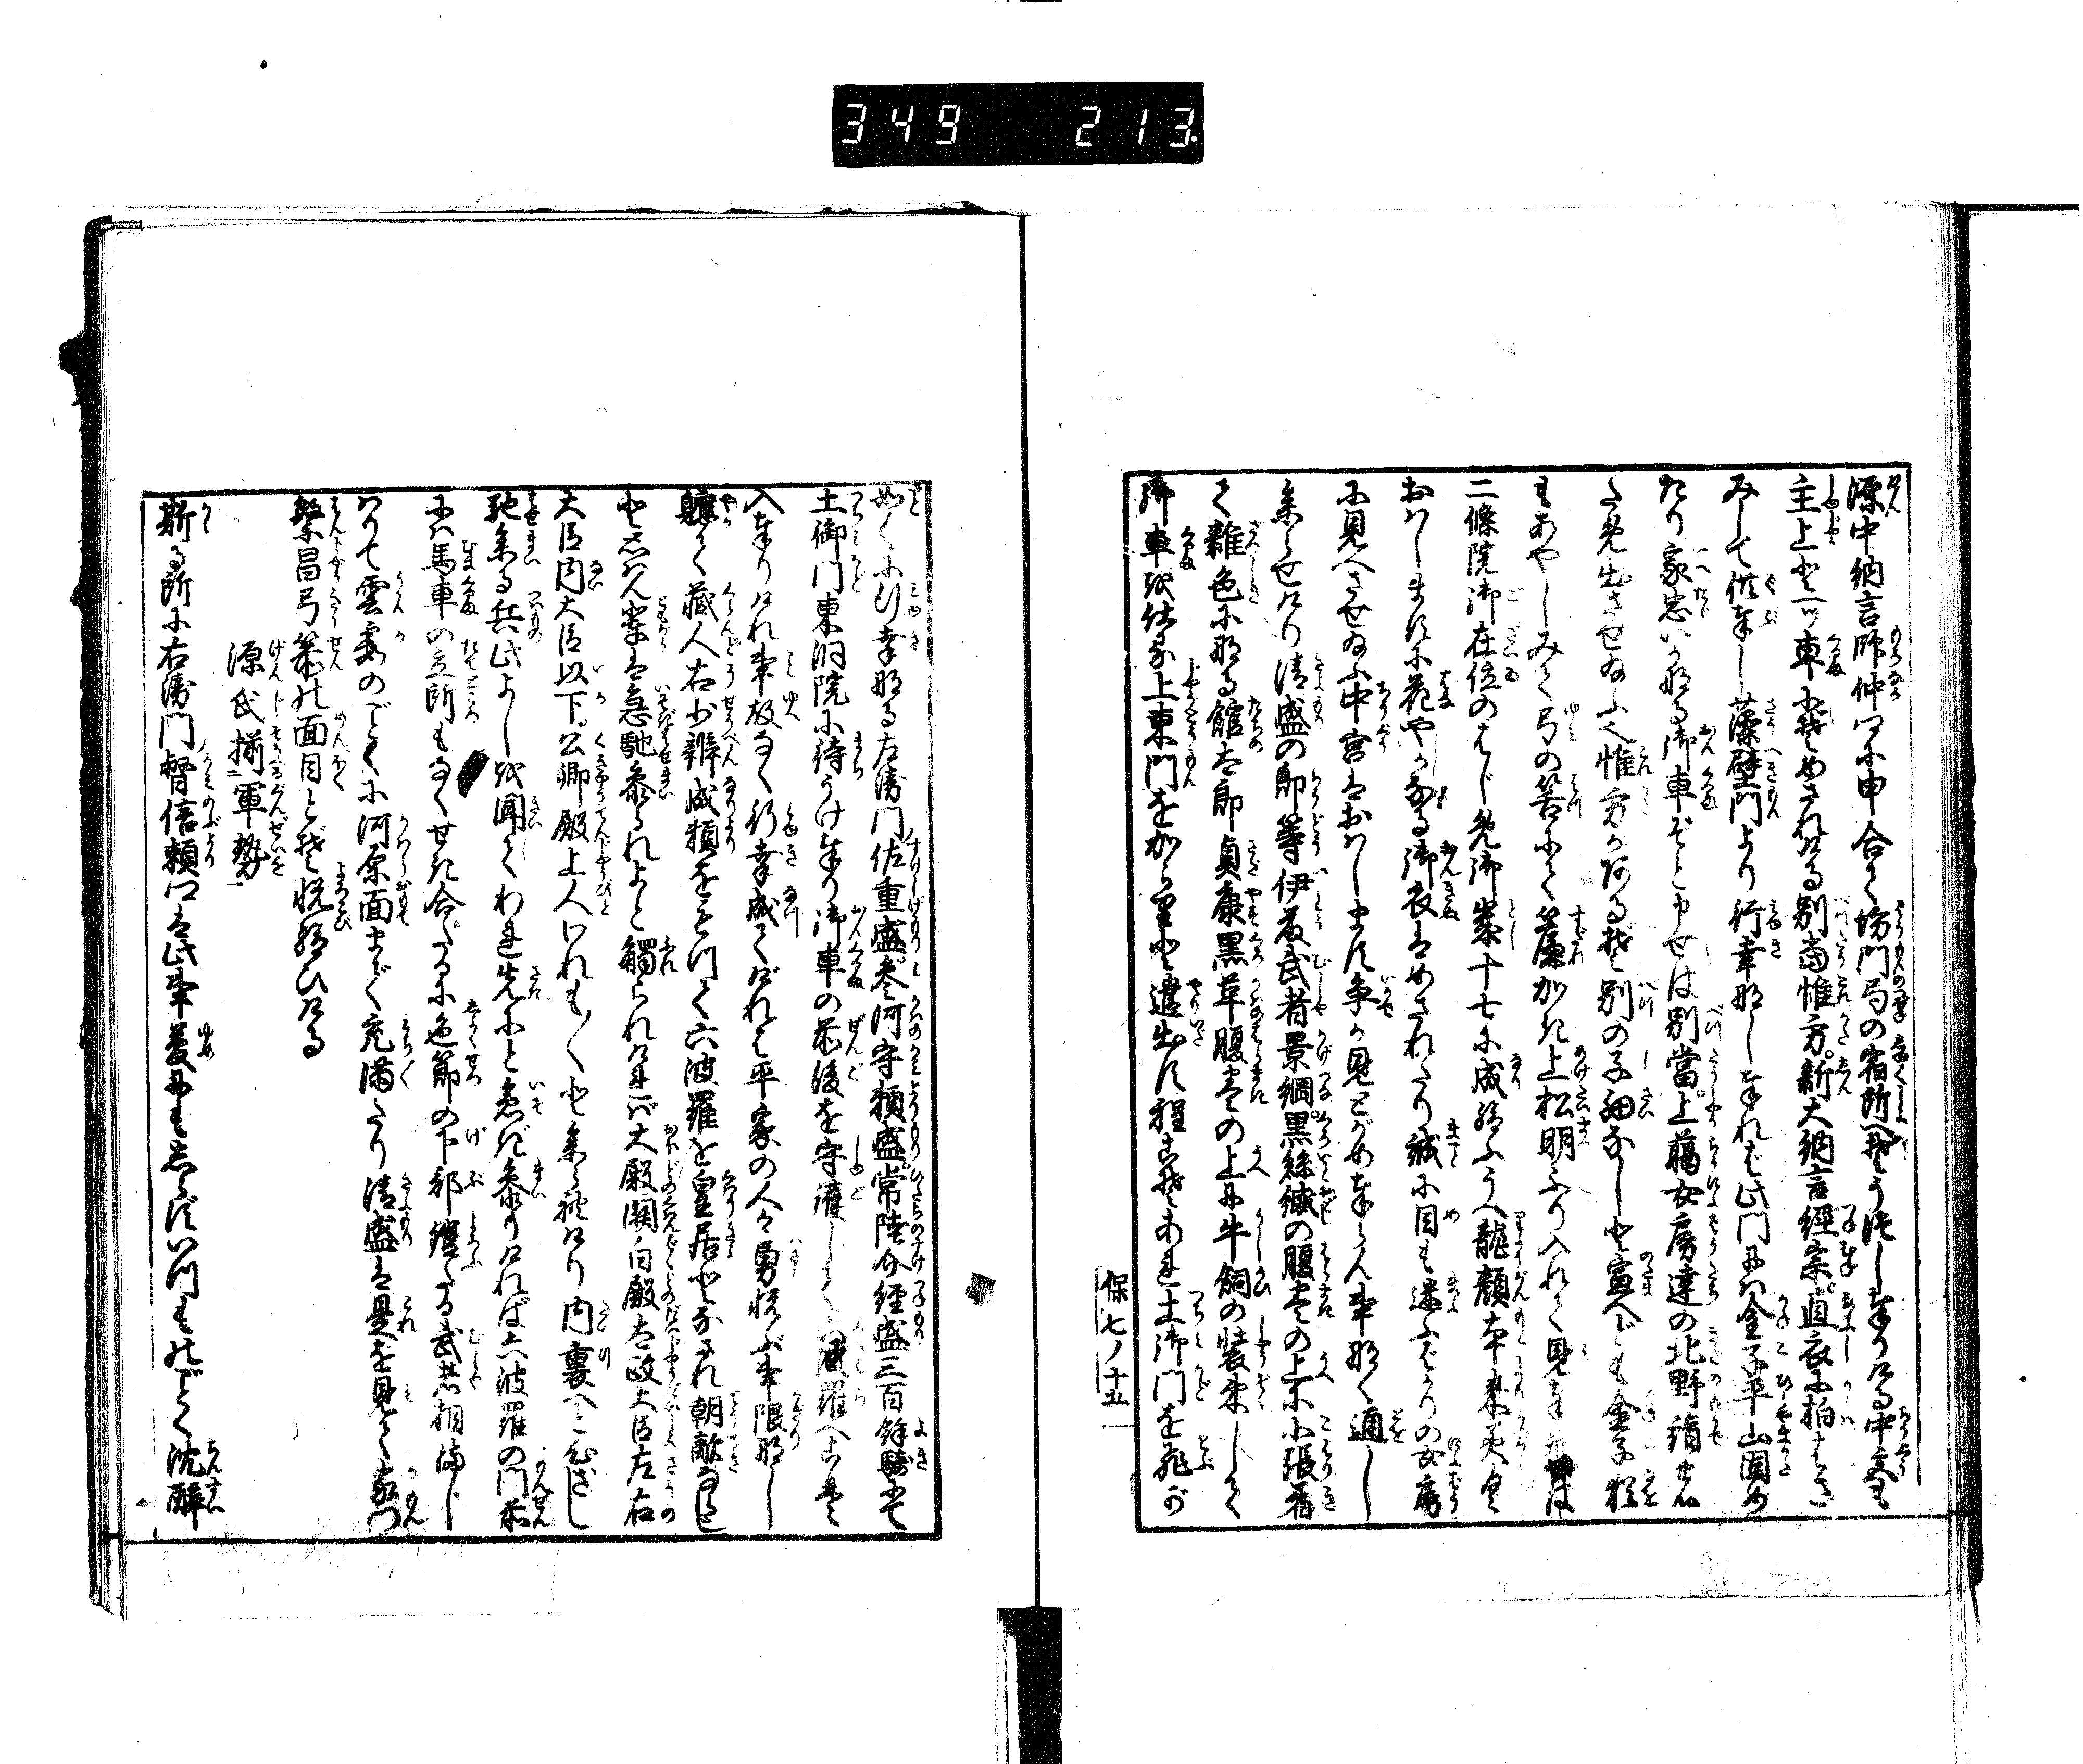 349 213
源中納言師仲卿に申合て坊門局の宿所へぞうつし奉りける中宮も
主上と一ツ車にぞめされける別当惟方新大納言経宗直衣に柏はさ
みして供奉し藻壁門より行幸なし奉れば此門には金子平山固め
たり家忠いかなる御車ぞと申せば別当上臈女房達の北野詣に
出させ給ふ也惟方があるぞ別の子細なしと宣へども金子猶
もあやしみて弓の筈にて簾かき上松明ふり入れて見奉れば
二條院御在位のはじめ御歳十七に成給ふうへ龍顔本来美しく
おはしますに花やかなる御衣はめされたり誠に目も迷ふばかりの女房
に見へさせ給ふ中宮はおはします争か見とがめ奉らん事なく通し
参らせけり清盛の郎等伊藤武者景綱黒糸縅の腹巻の上に小張着
て雑色になる館太郎貞康黒革腹巻の上に牛飼の装束して
御車を仕る上東門を
保七ノ十五
如くに行幸なる左衛門佐重盛参河守頼盛常陸介経盛三百余騎にて
土御門東洞院に待うけ奉り御車の前後を守護して六波羅へこそ
入奉りけれ事故なく行幸成てければ平家の人々勇悦ぶ事限なし
軈て蔵人右少弁成頼をもつて六波羅を皇居となされ朝敵ならじ
と思はん輩は急馳参るれよと觸られければ大殿関白殿太政大臣左右
大臣内大臣以下公卿殿上人いれも〳〵と参らせけり内裏へと心ざし
馳参る兵此よしを聞てわれ先にと急ぎ参りければ六波羅の門前
には馬車の立所もなくせき合たるに色節の下部纏たる武者相満し
けりて雲霞のごとくに河原面まで充満たり清盛は是を見て家門
繁昌弓箭の面目とぞ悦給ひける
源氏揃軍勢
斯る所に右衛門督信頼卿は此事夢にもしらずいつものごとく沈酔